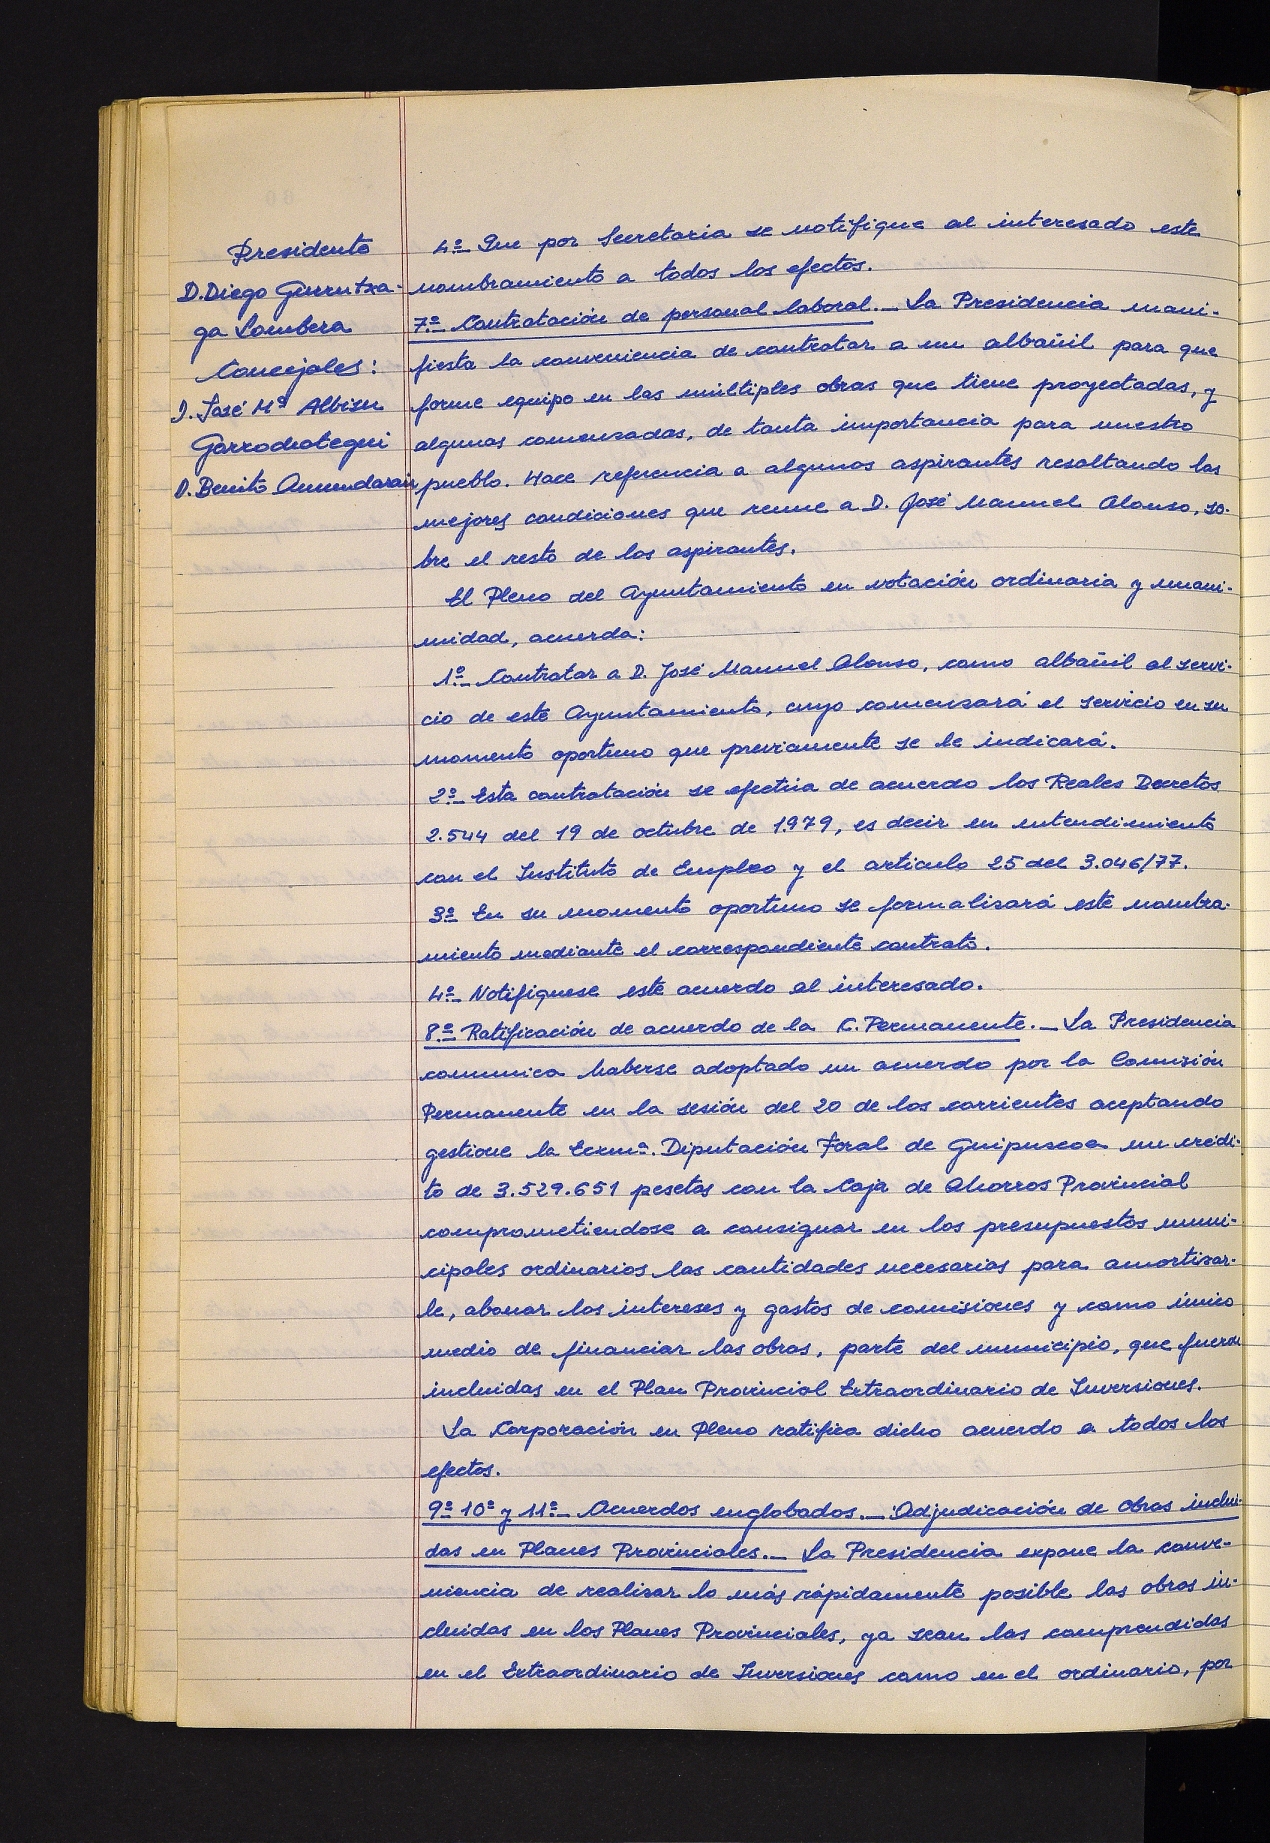 Presidente
D. Diego Gurrutxa-
ga Lombera
Concejales:
D. José Mª Albisu
Garrodiotegui
D. Benito Amundarain
4º- Que por Secretaria se notifique al interesado este
nombramiento a todos los efectos.
7º- Contratación de personal laboral._ La Presidencia mani-
fiesta la conveniencia de contratar a un albañil para que
forme equipo en las múltiples obras que tiene proyectadas, y
algunas comenzadas, de tanta importancia para nuestro
pueblo. Hace referencia a algunos aspirantes resaltando las
mejores condiciones que reune a D. José Manuel Alonso, so-
bre el resto de los aspirantes.
El Pleno del Ayuntamiento en votación ordinaria y unani-
midad, acuerda:
1º- Contratar a D. José Manuel Alonso, como albañil al servi-
cio de este Ayuntamiento, cuyo comenzará el servicio en su
momento oportuno que previamente se le indicará.
2º- Esta contratación se efectúa de acuerdo los Reales Decretos
2.544 del 19 de octubre de 1.979, es decir en entendimiento
con el Instituto de Empleo y el articulo 25 del 3.046/77.
3º- En su momento oportuno se formalizará este nombra-
miento mediante el correspondiente contrato.
4º- Notifiquese este acuerdo al interesado.
8º- Ratificación de acuerdo de la C. Permanente._ La Presidencia
comunica haberse adoptado un acuerdo por la Comisión
Permanente en la sesión del 20 de los corrientes aceptando
gestione la Excmª. Diputación Foral de Guipuscoa un crédi-
to de 3.529.651 pesetas con la Caja de Ahorros Provincial
comprometiendose a consignar en los presupuestos muni-
cipales ordinarios las cantidades necesarias para amortizar-
le, abonar los intereses y gastos de comisiones y como único
medio de financiar las obras, parte del municipio, que fueron
incluidas en el Plan Provincial Extraordinario de Inversiones.
La Corporación en Pleno ratifica dicho acuerdo a todos los
efectos.
9º 10º y 11º- Acuerdos englobados._ Adjudicación de obras inclui-
das en Planes Provinciales._ La Presidencia expone la conve-
niencia de realizar lo más rápidamente posible las obras in-
cluidas en los Planes Provinciales, ya sean las comprendidas
en el Extraordinario de Inversiones como en el ordinario, por